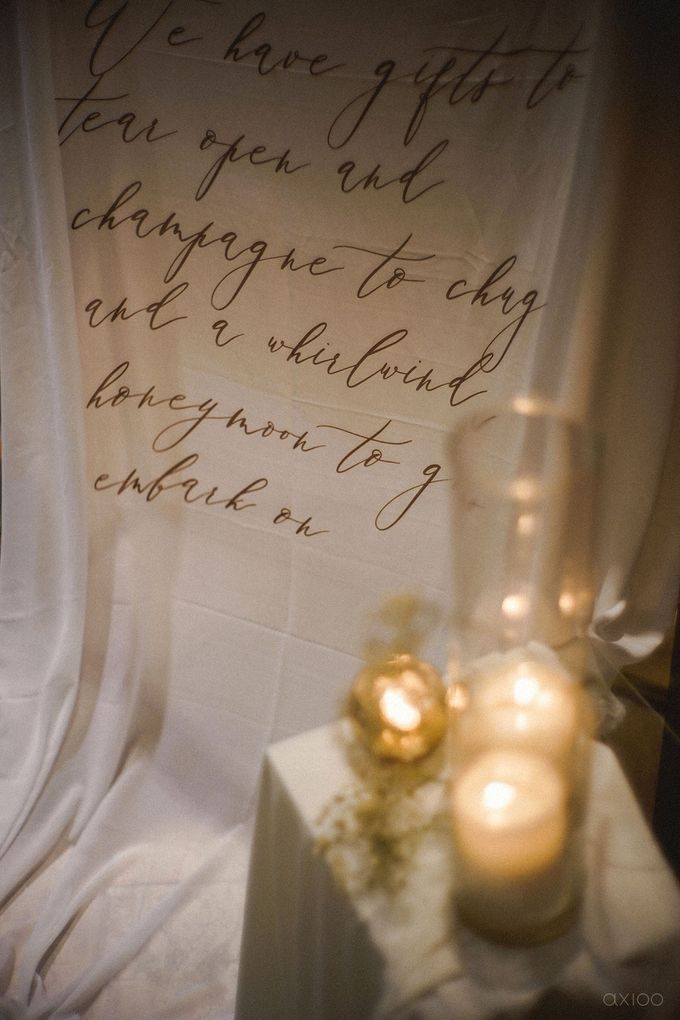 We have gifts to
tear open and
champagne to chug
and a whirlwind
honeymoon to g
embark on
axioo